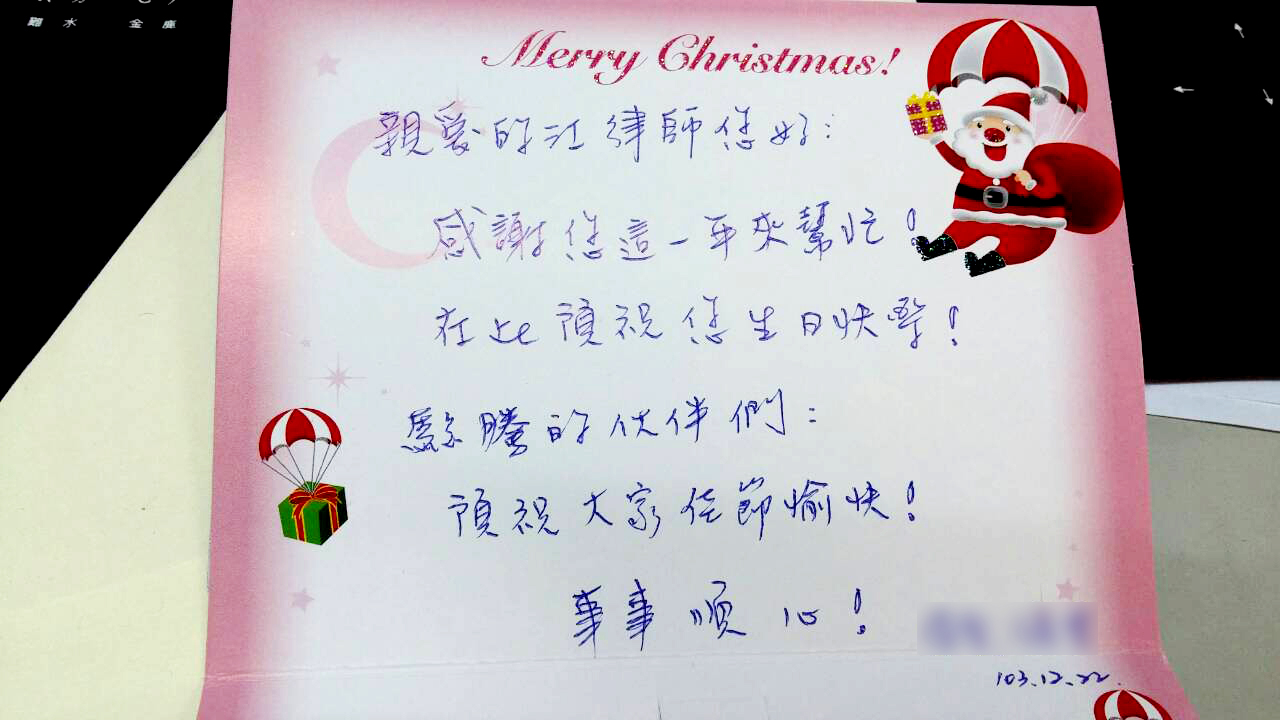 Merry Christmas!
親愛的江律師您好:
感謝您這一年來幫忙!
在此預祝您生日快樂!
騰的伙伴們:
預祝大家佳節愉快!
事事順心!
103.12.22.